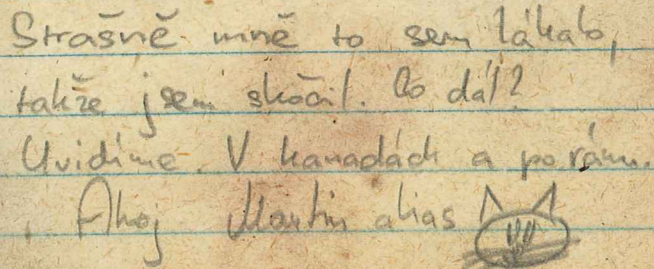 Strašně mně to sem lákalo,
takže jsem skočil. Co dál?
Uvidíme. V kanadách a po ránu.
Ahoj Martin alias